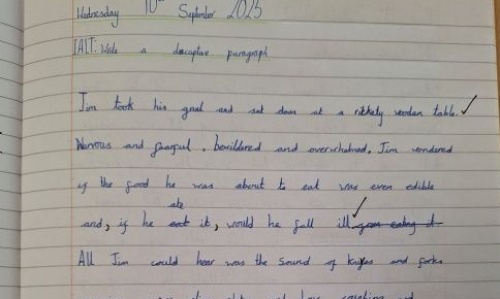 Wednesday 10th September 2025
IALT: Write a descriptive paragraph
Jim took his gruel and sat down at a rickety wooden table.
Nervous and fearful, bewildered and overwhelmed, Jim wondered
if the food he was about to eat was even edible
ate
and, if he eat it, would he fall ill from eating it
All Jim could hear was the sound of knifes and forks
and